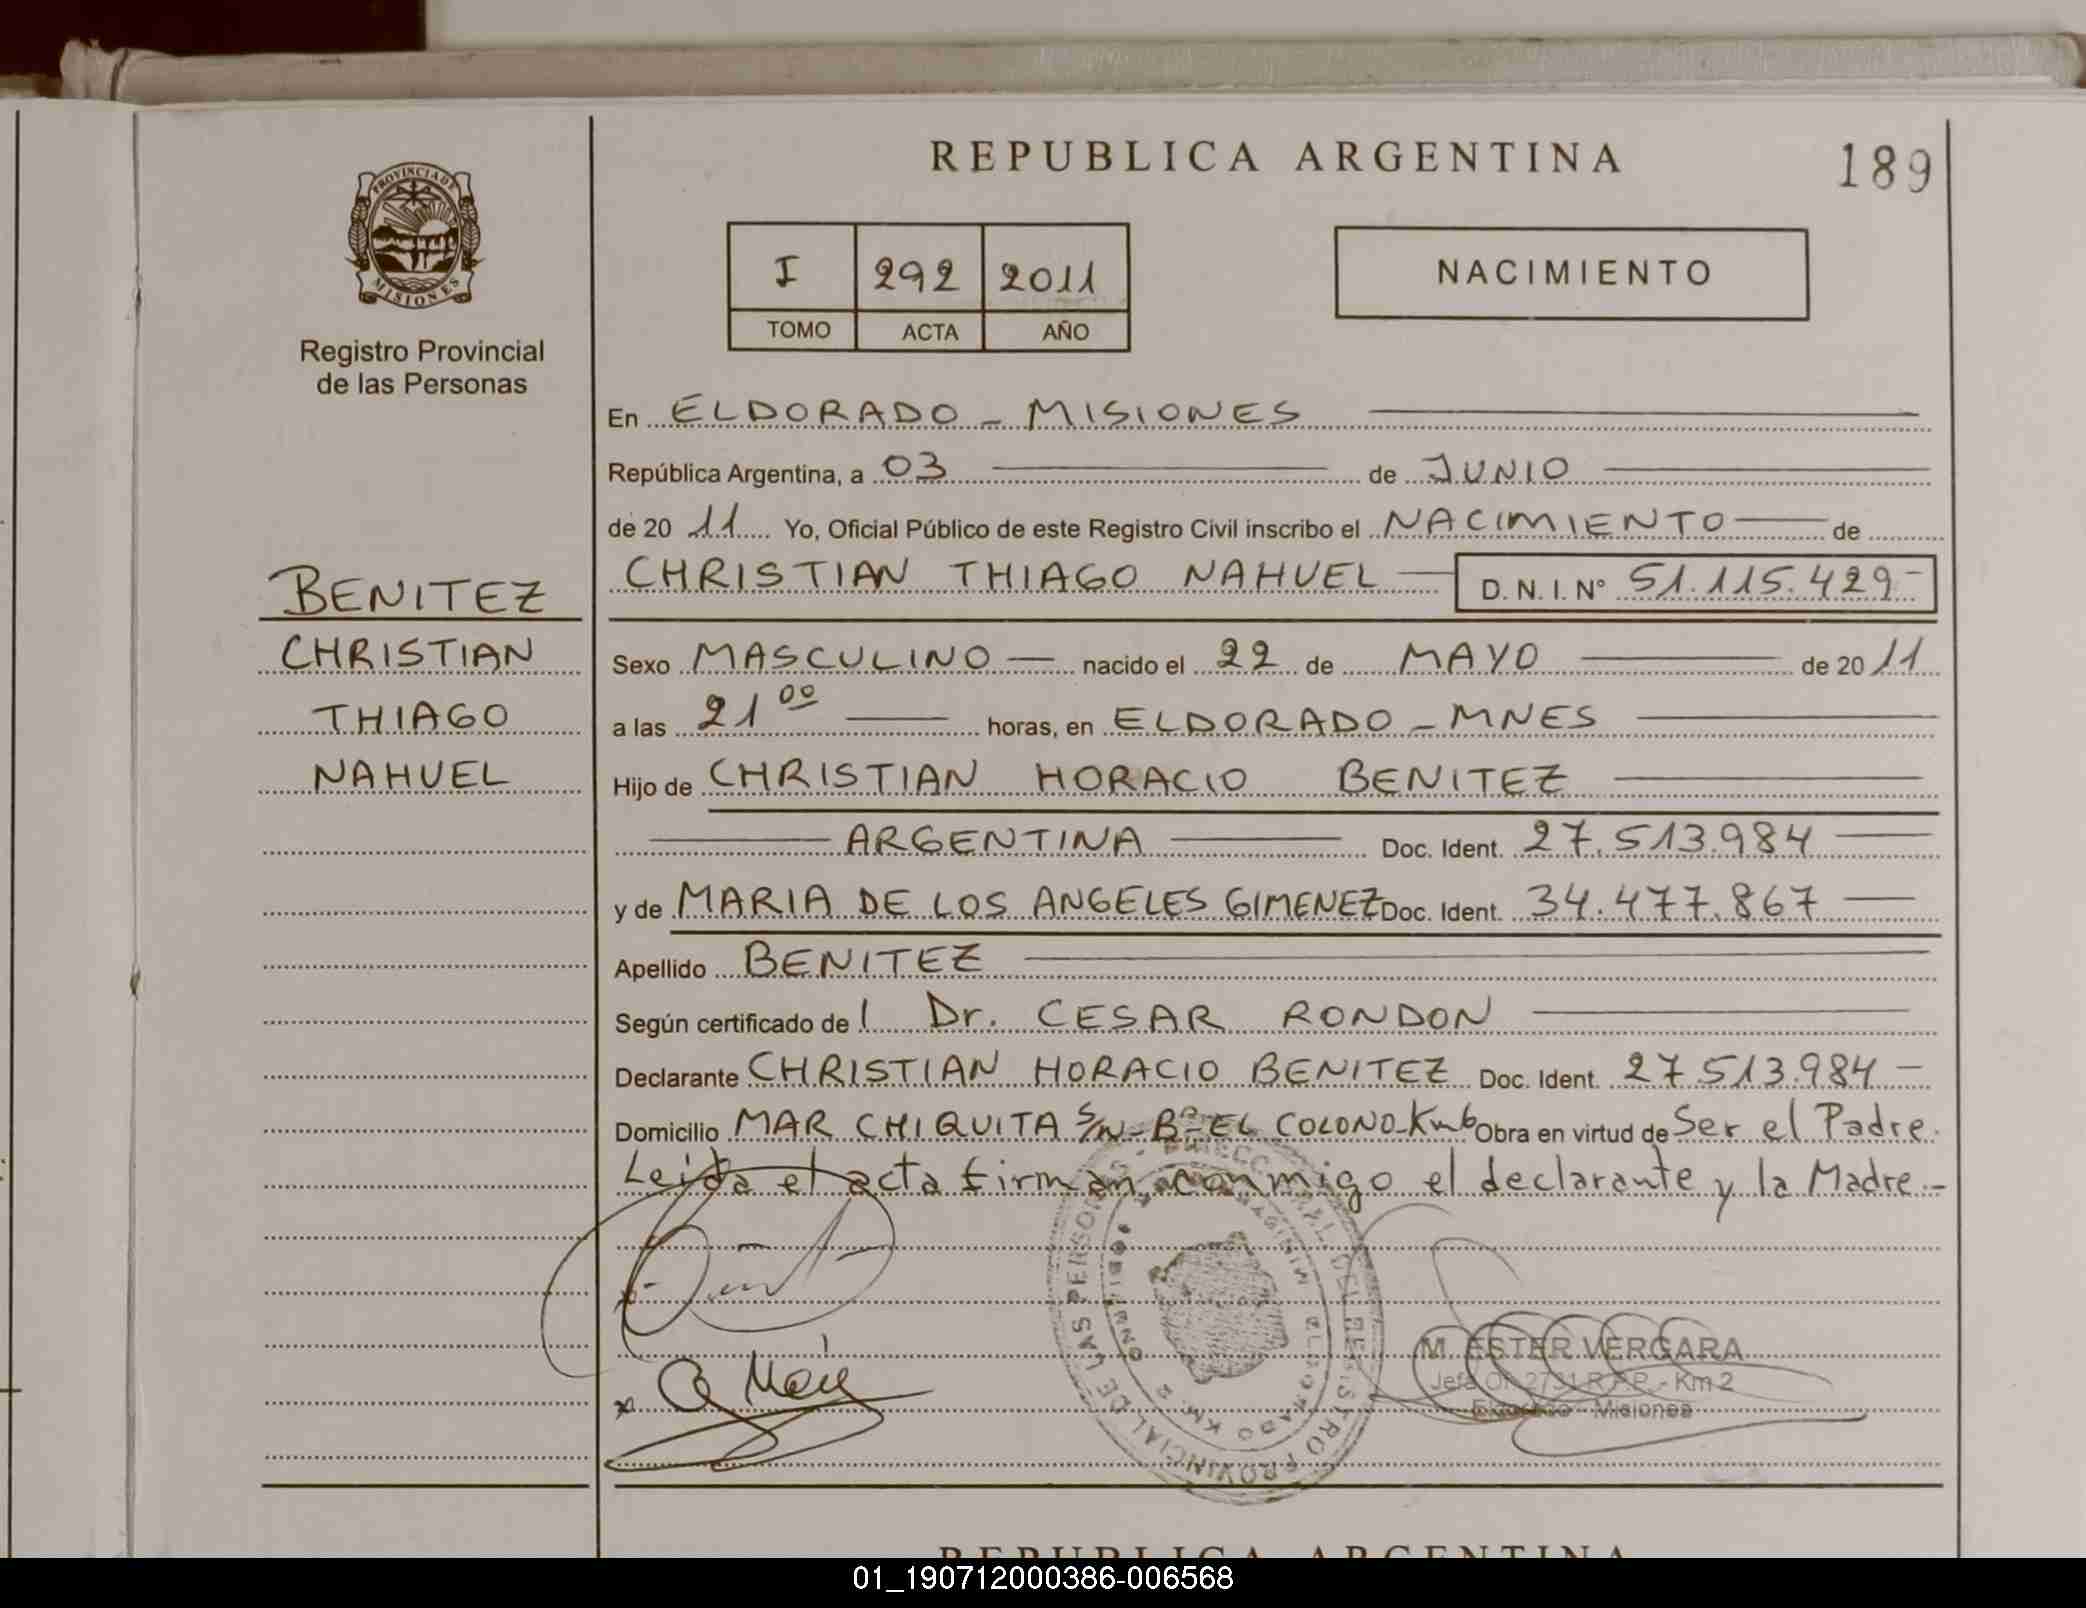 REPUBLICA ARGENTINA
189
PROVINCIA DE
MISIONES
Registro Provincial
de las Personas
I 292 2011
TOMO ACTA AÑO
NACIMIENTO
En ELDORADO - MISIONES
República Argentina, a 03 de JUNIO
de 20 11 Yo, Oficial Público de este Registro Civil inscribo el NACIMIENTO de
CHRISTIAN THIAGO NAHUEL D. N. I. N° 51.115.429-
BENITEZ
CHRISTIAN
THIAGO
NAHUEL
Sexo MASCULINO nacido el 22 de MAYO de 20 11
a las 21 00 horas, en ELDORADO - MNES
Hijo de CHRISTIAN HORACIO BENITEZ
ARGENTINA Doc. Ident. 27.513.984
y de MARIA DE LOS ANGELES GIMENEZ Doc. Ident. 34.477.867
Apellido BENITEZ
Según certificado de l Dr. CESAR RONDON
Declarante CHRISTIAN HORACIO BENITEZ Doc. Ident. 27.513.984 -
Domicilio MAR CHIQUITA S/N - Bº EL COLONO - Km 6 Obra en virtud de Ser el Padre.
Leida el acta firman conmigo el declarante y la Madre.-
M. ESTER VERGARA
Jefa Of. 2731 R.P.P. - Km 2
Eldorado - Misiones
REPUBLICA ARGENTINA
01_190712000386-006568